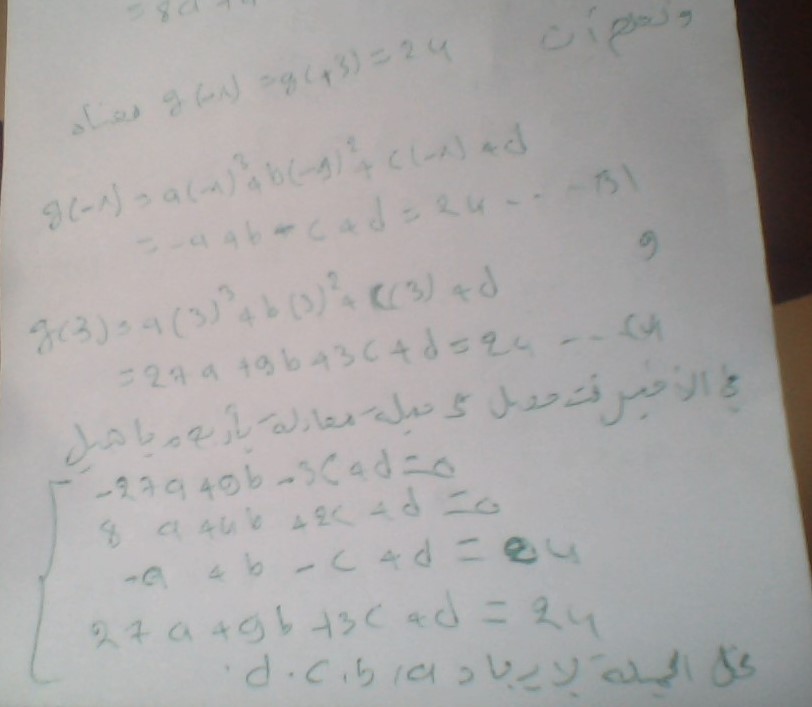 = 8a + 4
ونعلم أن
g(-1) = g(+3) = 24 معناه
g(-1) = a(-1)³ + b(-1)² + c(-1) + d
= -a + b - c + d = 24 ... (3)
و
g(3) = a(3)³ + b(3)² + c(3) + d
= 27a + 9b + 3c + d = 24 ... (4)
في الأخير نتحصل على جملة معادلة بأربع مجاهيل
-27a + 9b - 3c + d = 0
8a + 4b + 2c + d = 0
-a + b - c + d = 24
27a + 9b + 3c + d = 24
نحل الجملة لإيجاد a, b, c, d.